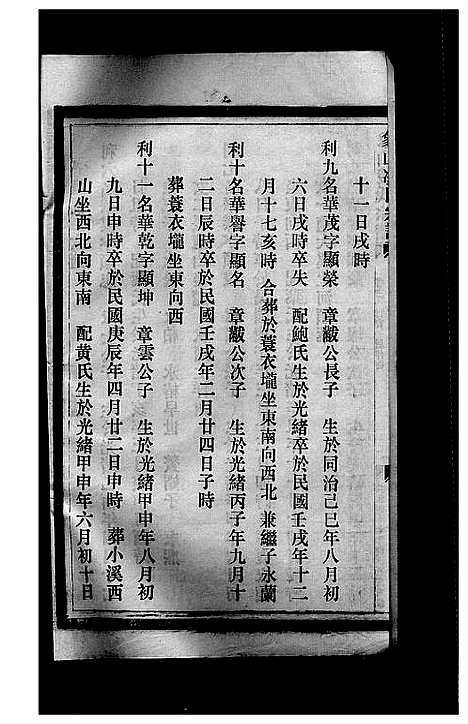 十一日戌時
利九名華茂字顯榮　章黻公長子　生於同治己巳年八月初
六日戌時卒失　配鮑氏生於光緒卒於民國壬戌年十二
月十七亥時　合葬於蓑衣壠坐東南向西北　兼繼子永蘭
利十名華譽字顯名　章黻公次子　生於光緒丙子年九月十
二日辰時卒於民國壬戌年二月廿四日子時
葬蓑衣壠坐東向西
利十一名華乾字顯坤　章雲公子　生於光緒甲申年八月初
九日申時卒於民國庚辰年四月廿二日申時　葬小溪西
山坐西北向東南　配黄氏生於光緒甲申年六月初十日